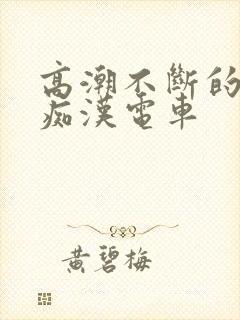 高潮不斷的
痴漢電車
黃碧梅